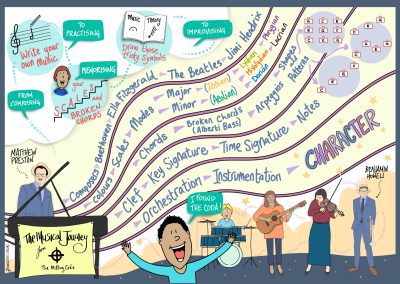 TO PRACTISING
TO IMPROVISING
Music Theory
Write your own music
Draw those twisty symbols
MEMORISING
your
SCALES and BROKEN CHORDS
FROM COMPOSING
MATTHEW PRESTON
Composers Beethoven Ella Fitzgerald The Beatles Jimi Hendrix
Colours Scales Modes Major (Ionian) Lydian Mixolydian Dorian Phrygian Locrian
Minor (Aeolian)
Chords Broken Chords (Alberti Bass) Arpeggios Shapes Patterns
Clef Key Signature Time Signature Notes
Orchestration Instrumentation
CHARACTER
BENJAMIN HOWELL
I FOUND THE CODA!
The Musical Journey
for
The Missing Coda